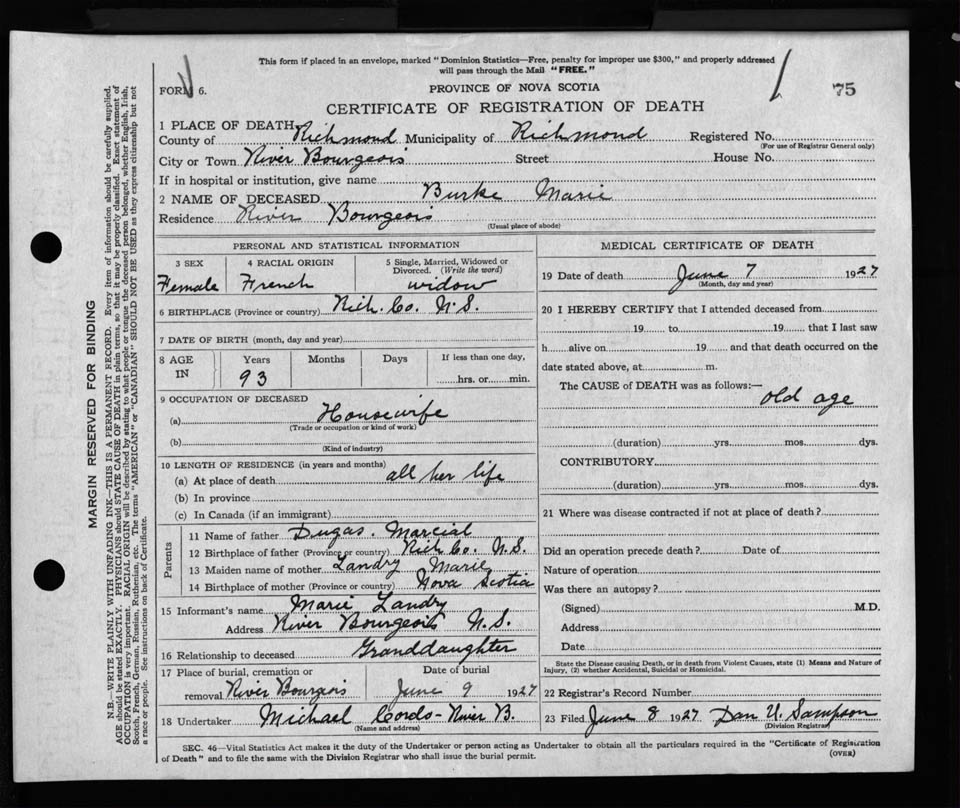 This form if placed in an envelope, marked "Dominion Statistics—Free, penalty for improper use $300," and properly addressed
will pass through the Mail "FREE."
FORM 6.
PROVINCE OF NOVA SCOTIA
75
CERTIFICATE OF REGISTRATION OF DEATH
1 PLACE OF DEATH
County of Richmond Municipality of Richmond Registered No.
(For use of Registrar General only)
City or Town River Bourgeois Street House No.
If in hospital or institution, give name
2 NAME OF DECEASED Burke Marie
Residence River Bourgeois
(Usual place of abode)
PERSONAL AND STATISTICAL INFORMATION
3 SEX 4 RACIAL ORIGIN 5 Single, Married, Widowed or
Divorced. (Write the word)
Female French widow
6 BIRTHPLACE (Province or country) Rich. Co. N.S.
7 DATE OF BIRTH (month, day and year)
8 AGE IN Years Months Days If less than one day,
93 hrs. or min.
9 OCCUPATION OF DECEASED
(a) Housewife
(Trade or occupation or kind of work)
(b)
(Kind of industry)
10 LENGTH OF RESIDENCE (in years and months)
(a) At place of death all her life
(b) In province
(c) In Canada (if an immigrant)
Parents
11 Name of father Dugas. Marcial
12 Birthplace of father (Province or country) Rich Co. N.S.
13 Maiden name of mother Landry Marie
14 Birthplace of mother (Province or country) Nova Scotia
15 Informant's name Marie Landry
Address River Bourgeois N.S.
16 Relationship to deceased Granddaughter
17 Place of burial, cremation or Date of burial
removal River Bourgois June 9 1927
18 Undertaker Michael Cordo - River B.
(Name and address)
MEDICAL CERTIFICATE OF DEATH
19 Date of death June 7 1927
(Month, day and year)
20 I HEREBY CERTIFY that I attended deceased from
19 to 19 that I last saw
h alive on 19 and that death occurred on the
date stated above, at m.
The CAUSE of DEATH was as follows:—
old age
(duration) yrs. mos. dys.
CONTRIBUTORY
(duration) yrs. mos. dys.
21 Where was disease contracted if not at place of death?
Did an operation precede death? Date of
Nature of operation
Was there an autopsy?
(Signed) M.D.
Address
Date
State the Disease causing Death, or in death from Violent Causes, state (1) Means and Nature of
Injury, (2) whether Accidental, Suicidal or Homicidal.
22 Registrar's Record Number
23 Filed June 8 1927 Dan U. Sampson
(Division Registrar)
SEC. 46—Vital Statistics Act makes it the duty of the Undertaker or person acting as Undertaker to obtain all the particulars required in the "Certificate of Registration
of Death" and to file the same with the Division Registrar who shall issue the burial permit.
(OVER)
MARGIN RESERVED FOR BINDING
N.B.—WRITE PLAINLY WITH UNFADING INK—THIS IS A PERMANENT RECORD. Every item of information should be carefully supplied.
AGE should be stated EXACTLY. PHYSICIANS should STATE CAUSE OF DEATH in plain terms, so that it may be properly classified. Exact statement of
OCCUPATION is very important. RACIAL ORIGIN will be described by stating to what people or tongue the deceased person belonged, whether English, Irish,
Scotch, French, German, Russian, Ruthenian, etc. The terms "AMERICAN" or "CANADIAN" SHOULD NOT BE USED as they express citizenship but not
a race or people. See instructions on back of Certificate.